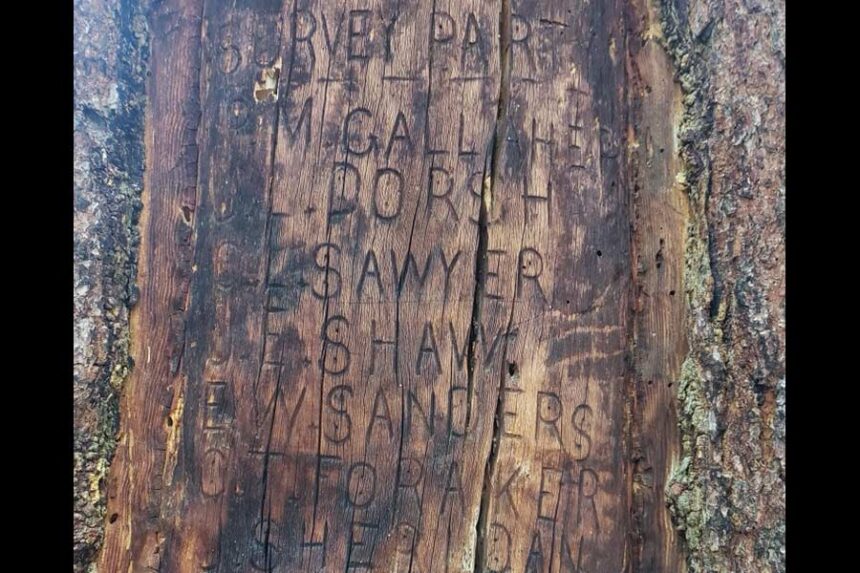 SURVEY PARTY
M. GALLAHER
L. DORSH
L. SAWYER
E. SHAW
E. W. SANDERS
C. T. FORAKER
SHERIDAN